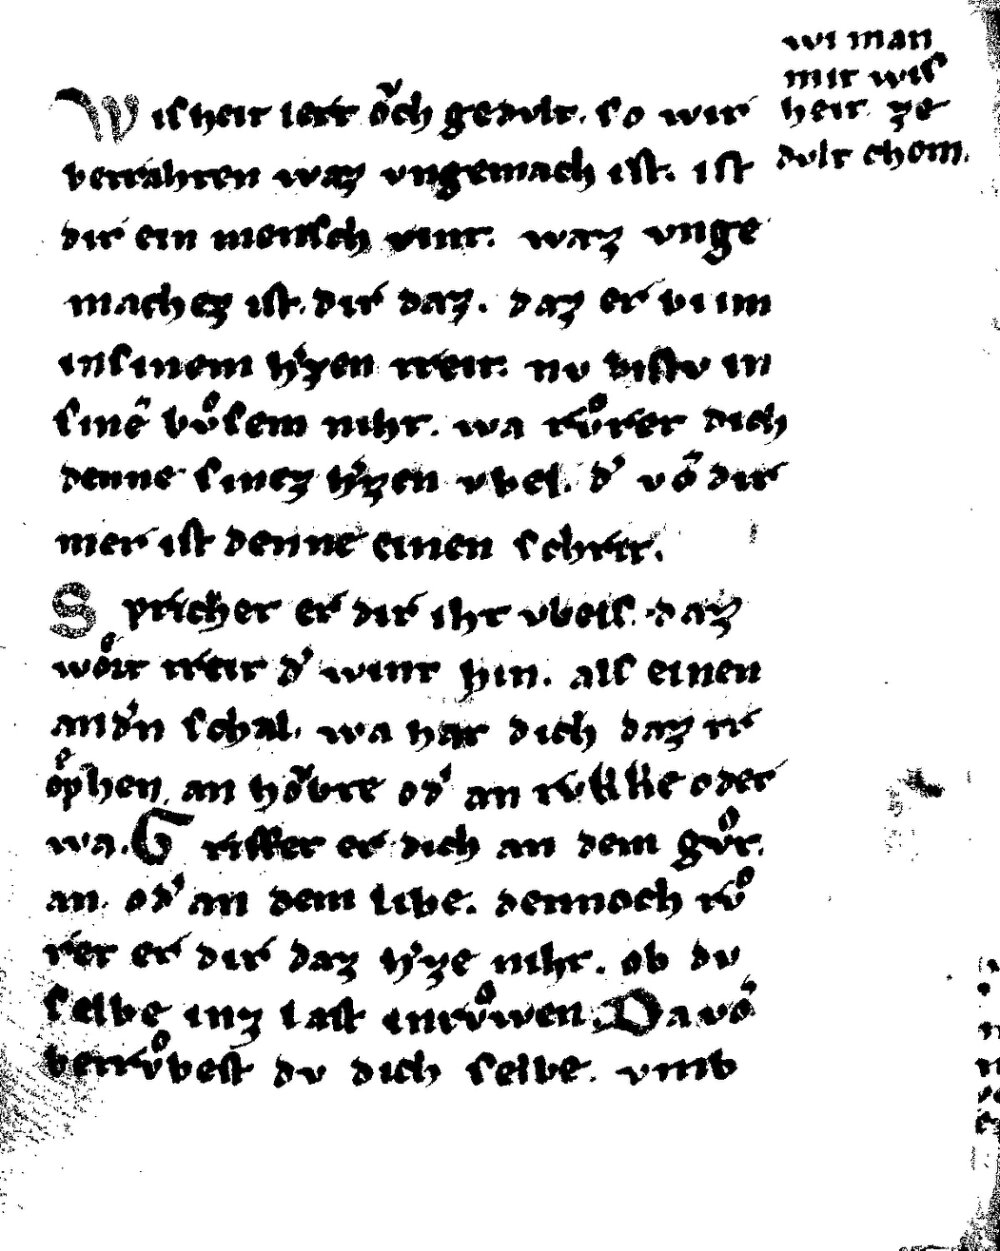 wi man
mit wiſ
heit ze
dvlt chom.
Wiſheit lert oͮch gedvlt. ſo wir
betrahten waz vngemach iſt. iſt
dir ein menſch vint. waz vnge
maches iſt dir daz. daz er vi im
inſinem h'zen treit. nv biſtv in
ſinē bůſem niht. wa růret dich
denne ſinez h'zen vbel. d' vō dir
mer iſt denne einen ſchrit.
Sprichet er dir iht vbelſ. daz
woͤrt treit d' wint hin. alſ einen
and'n ſchal. wa hat dich daz tr
oͤphen, an hoͮbte od' an rvkke oder
wa. Griffet er dich an dem gůt.
an. od' an dem libe. dennoch rů
ret er dir daz h'ze niht. ob dv
ſelbe inz laſt intrůwen. Da vō
betrůbeſt dv dich ſelbe. vmb